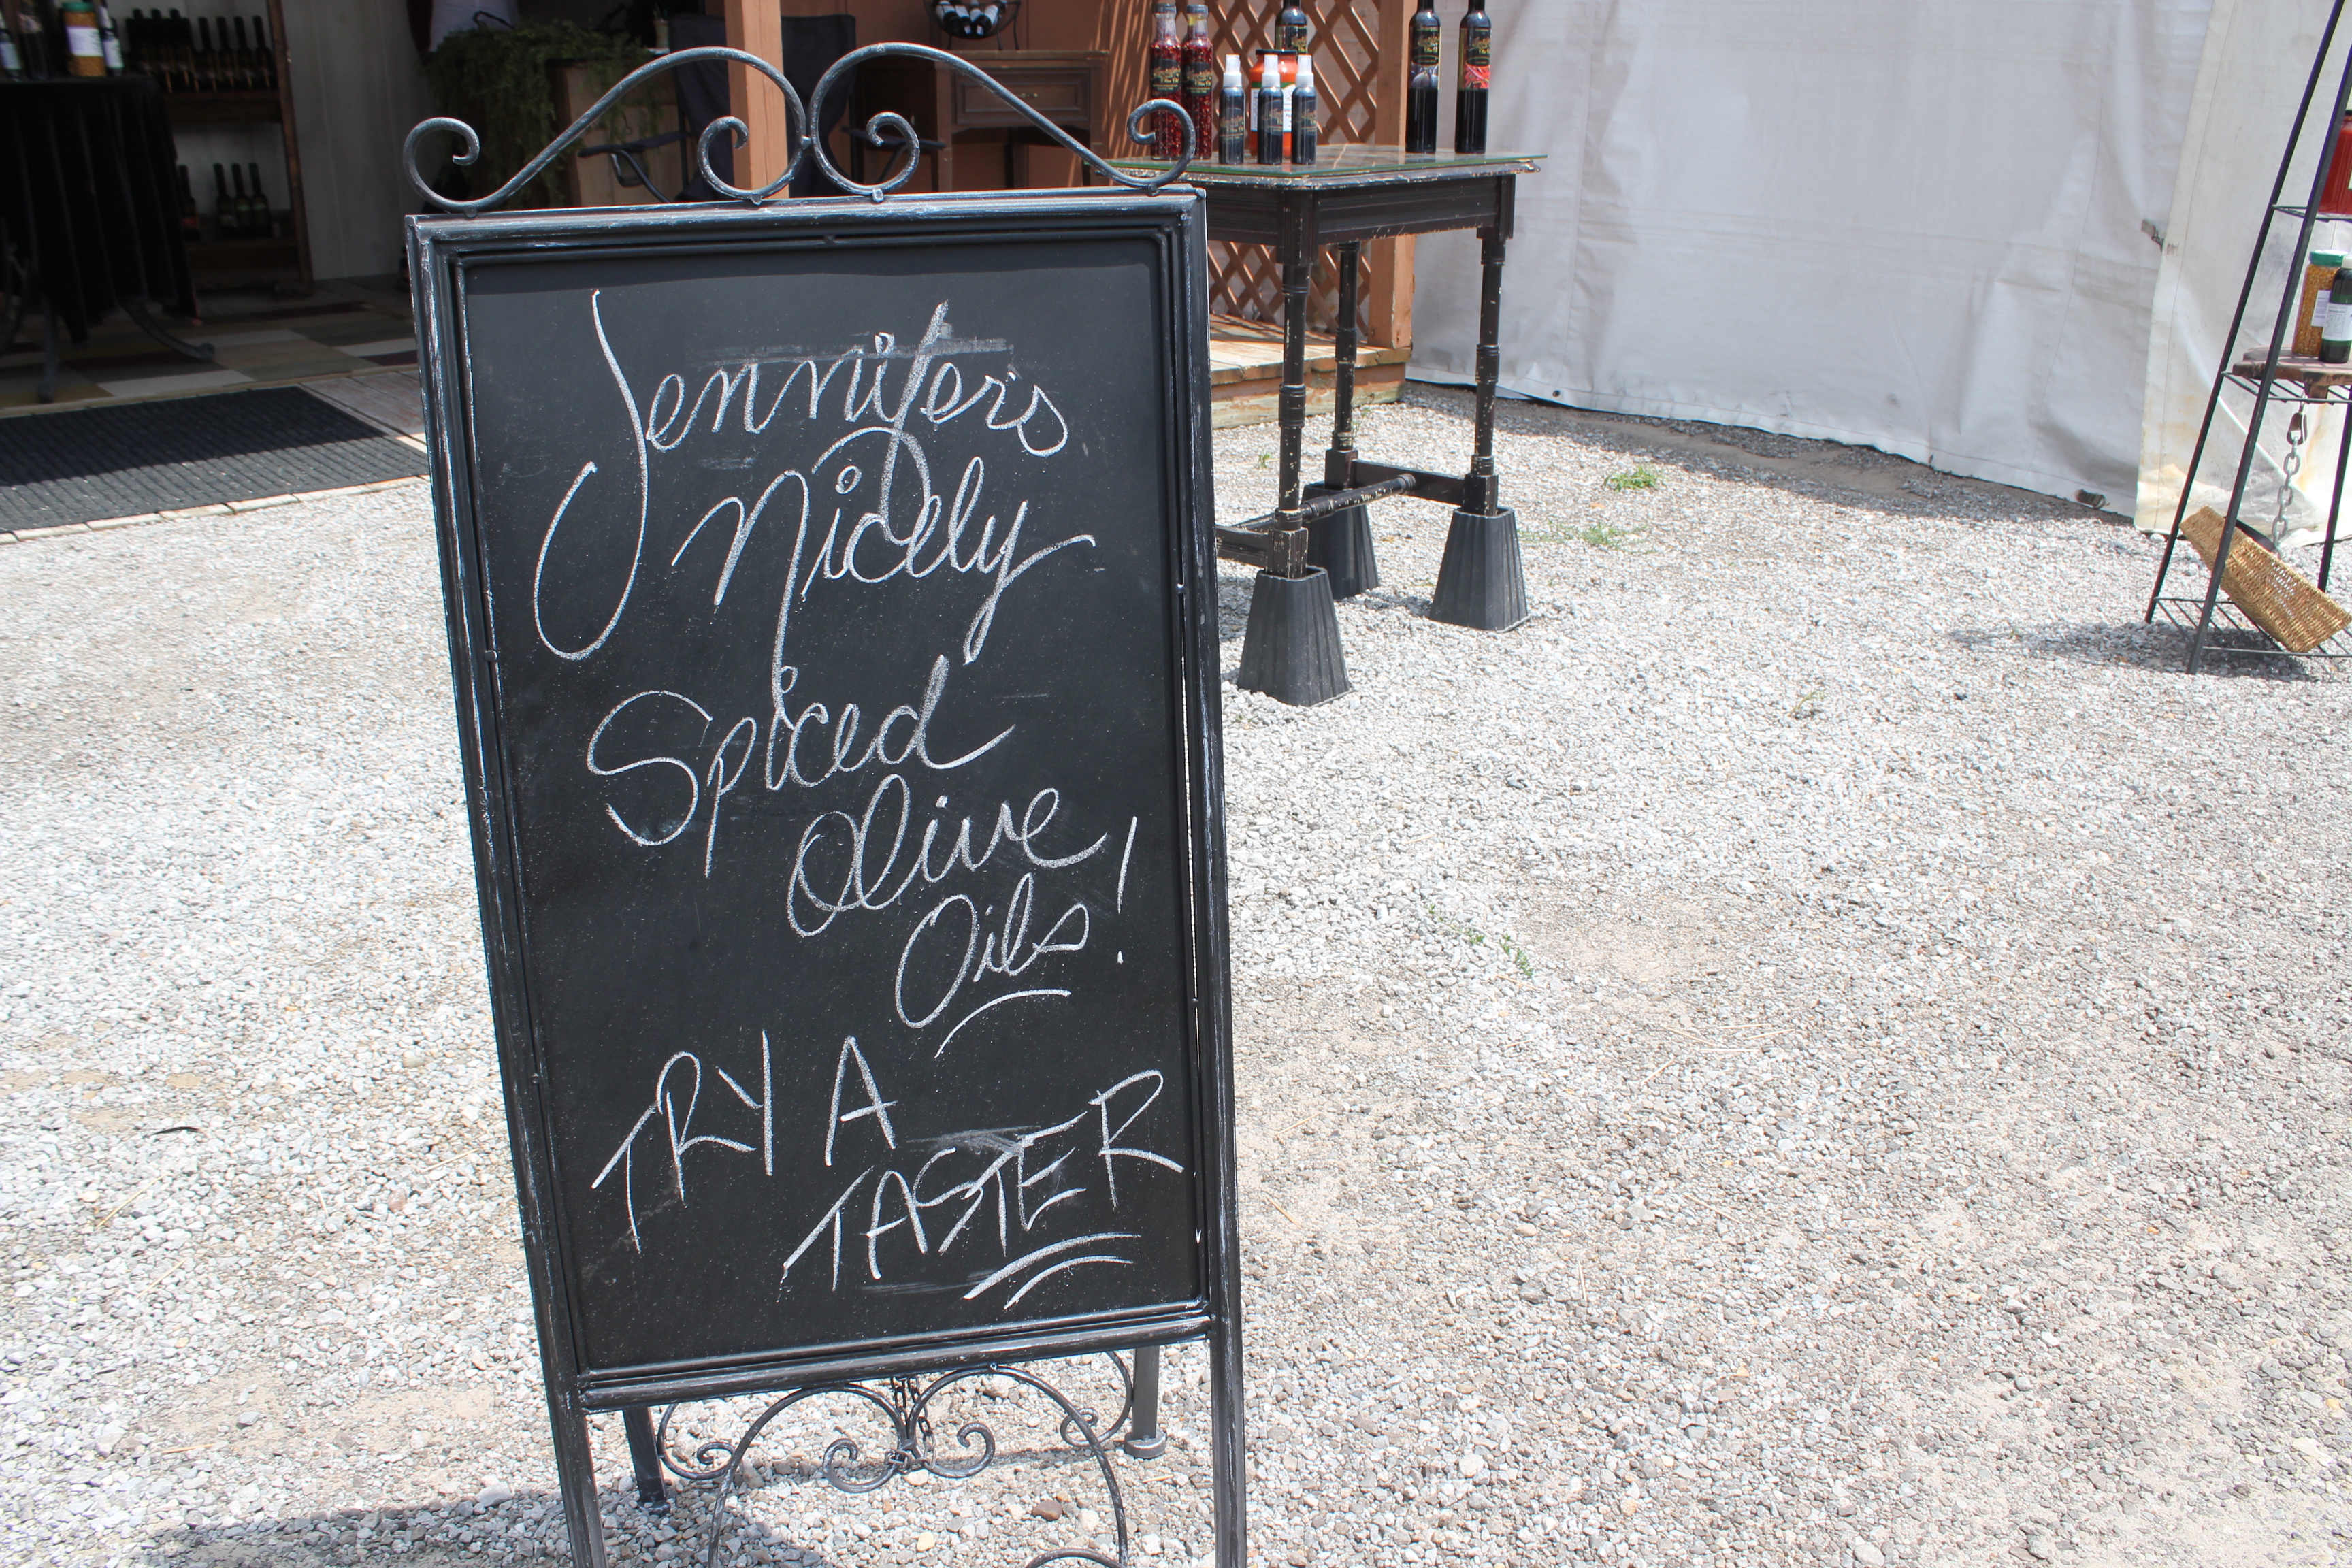 Jennifer's
Nicely
Spiced
Olive
Oils!
TRY A
TASTER